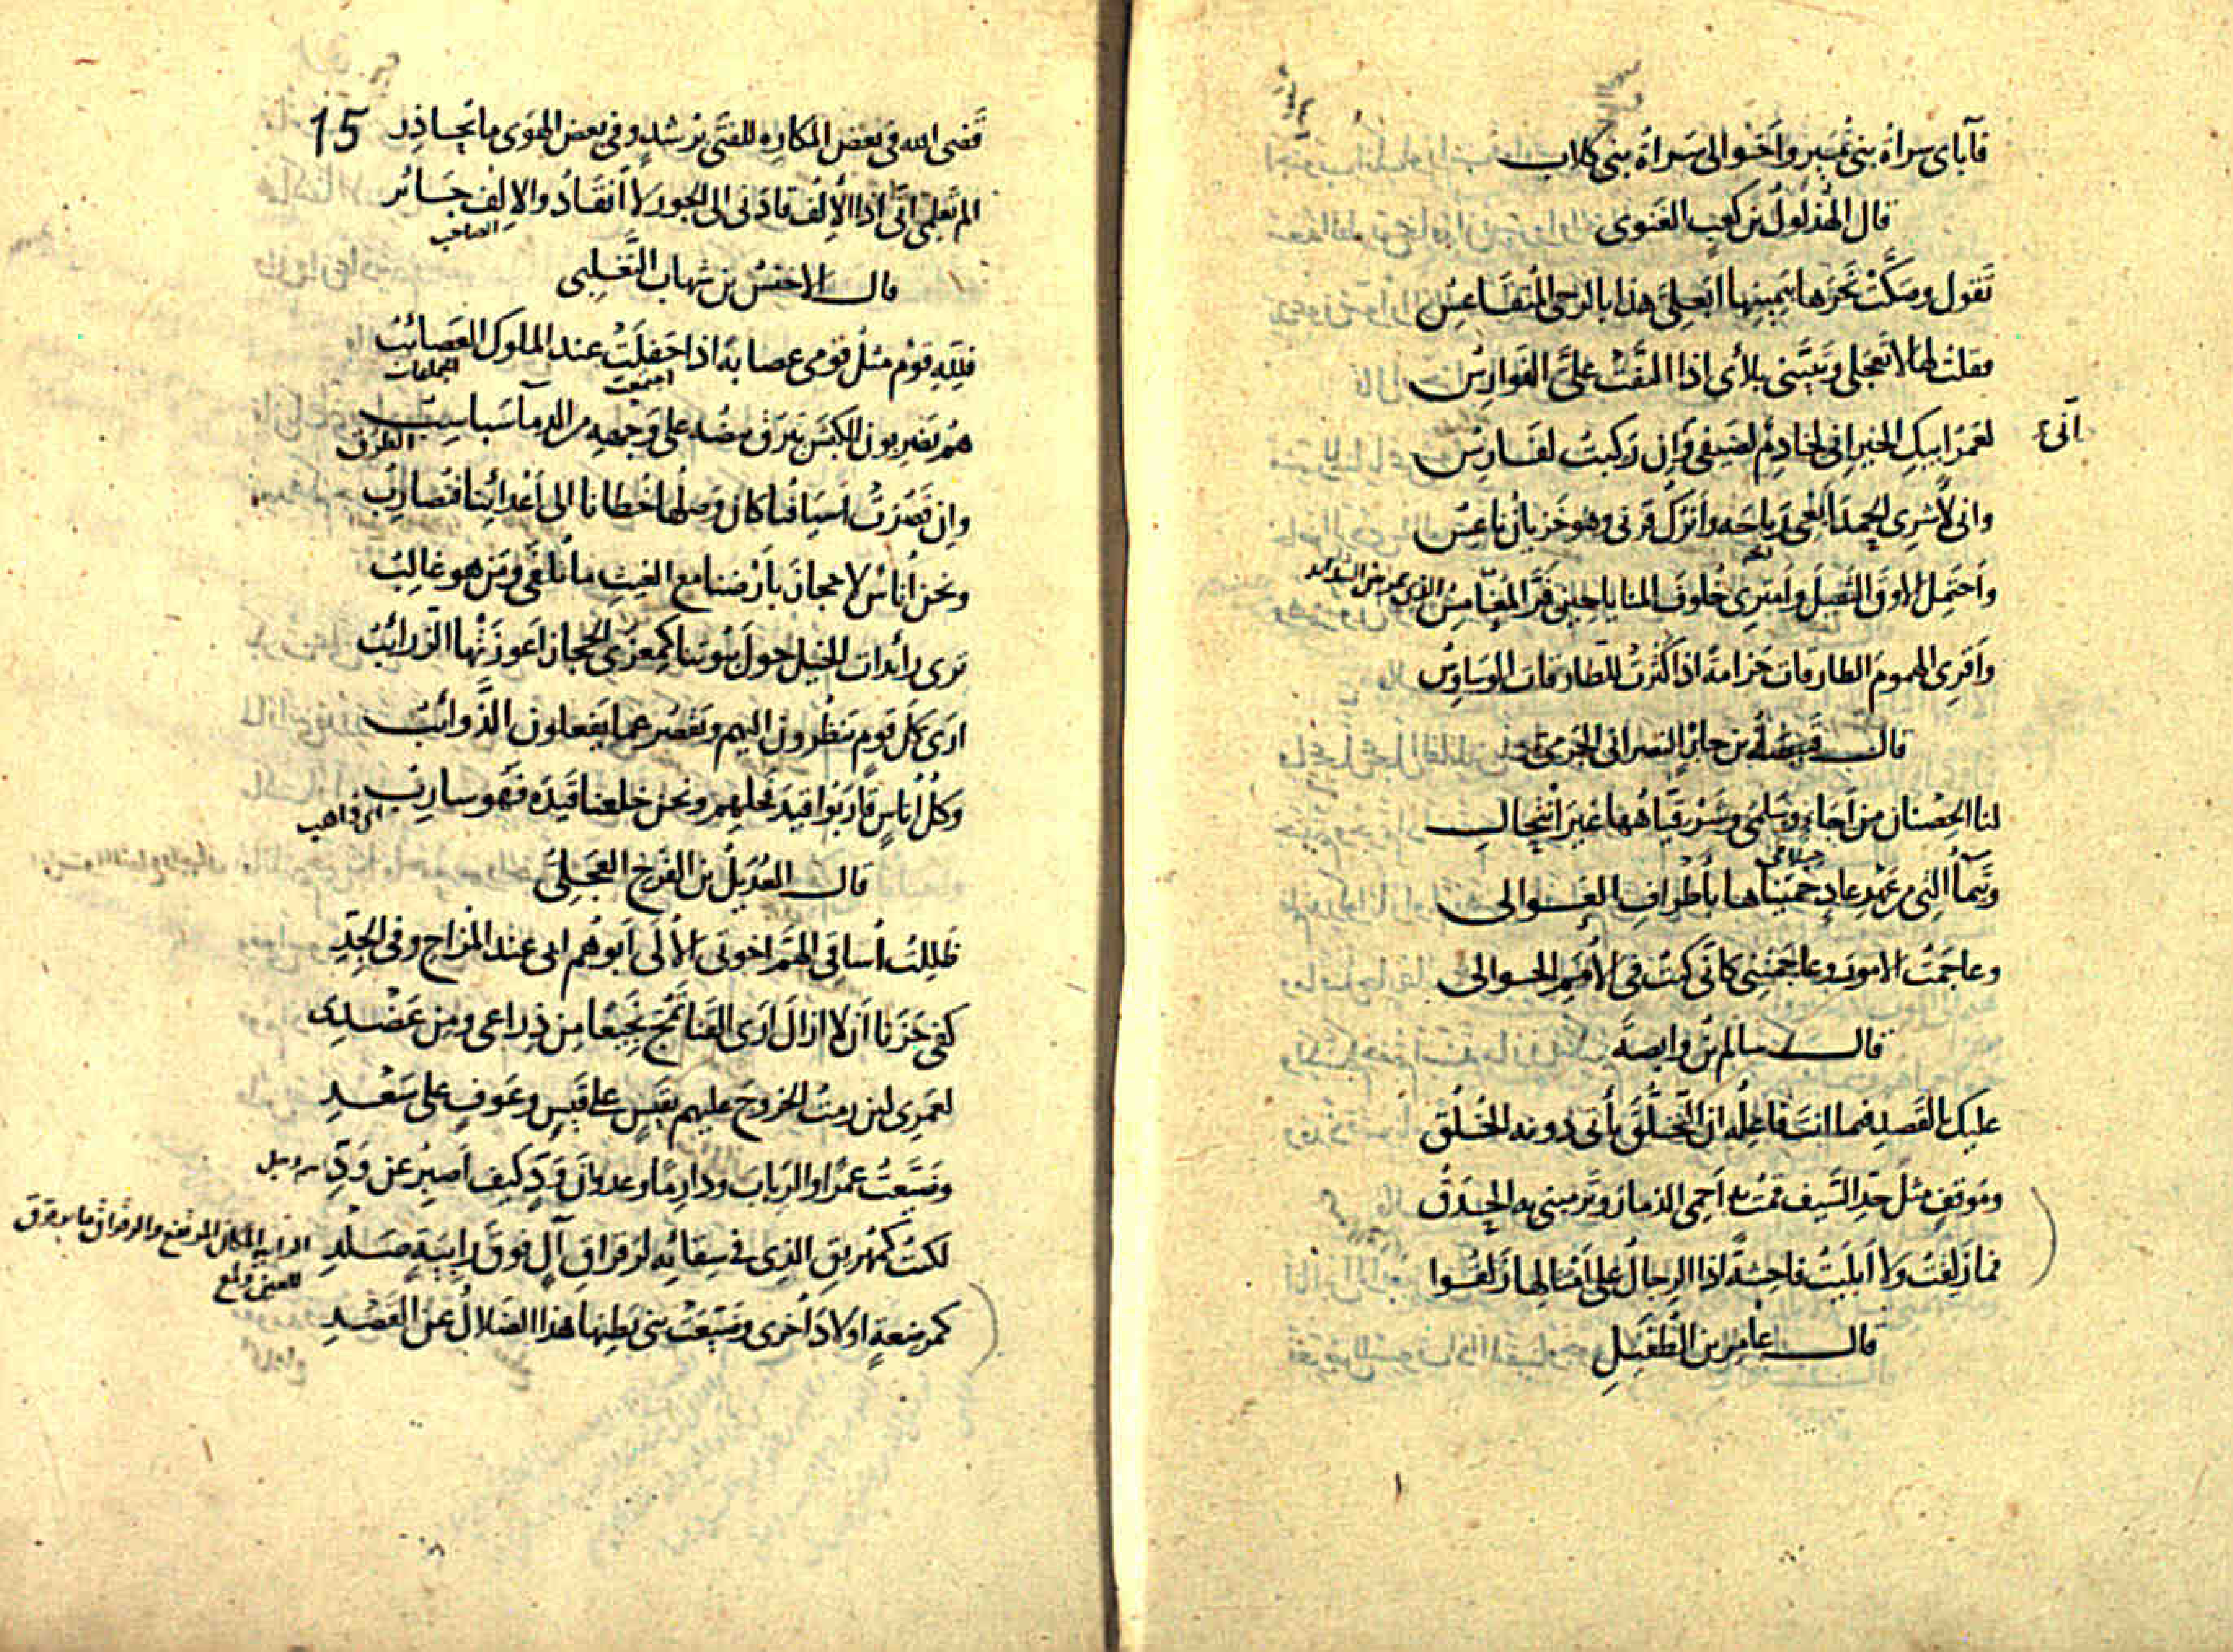 فآباى سراة بنى نمير واخوالى سراة بنى كلاب
قال الهذلول بن كعب العنبوى
تقول وصكت نحرها بيمينها ابعلى هذا بالرحى المتقاعس
فقلت لها لا تعجلى وتبينى بلائى اذا التفت على الفوارس
لعمر ابيك الخير انى لخادم لضيفى وان ركبت لفارس
انى
وانى لاشرى الحمد ابغى رباحه واترك قرنى وهو خزيان ناعس
واحتمل الاوق الثقيل وامترى خلوف المنايا حين فر المغامس
واقرى الهموم الطارقات حزامة اذا كثرت للطارقات الوساوس
قال قبيصة بن جابر النصرانى الجرمى
لنا الحصنان من اجاء وسلمى وشرقياهما غير انتحال
جبلا طى
وتيماء التى من عهد عاد حميناها باطراف العوالى
وعاجمت الامور وعاجمتنى كانى كنت فى الامم الخوالى
قال سالم بن وابصة
عليك بالقصد فيما انت فاعله ان التخلق يأتى دونه الخلق
وموقف مثل حد السيف قمت به احمى الذمار وترمينى به الحدق
فما زلقت ولا ابليت فاحشة اذا الرجال على امثالها زلقوا
قال عامر بن الطفيل
15
قضى الله فى بعض المكاره للفتى برشد وفى بعض الهوى ما يحاذر
الم تعلمى انى اذا الالف قادنى الى الجور لا انقاد والالف جائر
الصاحب
قال الاخنس بن شهاب التغلبى
فلله قوم مثل قومى عصابة اذا حفلت عند الملوك العصائب
اجتمعت الجماعات
هم يضربون الكبش يبرق بيضه على وجهه من الدماء سبائب
الطرق
وان قصرت اسيافنا كان وصلها خطانا الى اعدائنا فنضارب
ونحن اناس لا حجاز بارضنا مع الغيث ما نلفى ومن هو غالب
ترى رائدات الخيل حول بيوتنا كمعزى الحجاز اعوزتها الزرائب
ارى كل قوم ينظرون اليهم وتقصر عما يفعلون الذوائب
وكل اناس قاربوا قيد فحلهم ونحن خلعنا قيده فهو سارب
اى ذاهب
قال العديل بن الفرخ العجلى
ظللت اساقى الهم اخوتى الالى ابوهم ابى عند المزاح وفى الجد
كفى حزنا ان لا ازال ارى القنا تمج نجيعا من ذراعى ومن عضدى
لعمرى لئن رمت الخروج عليهم بقيس على قيس وعوف على سعد
وضيعت عمرا والرباب ودارما وعدوان ود كيف اصبر عن ود
لكنت كمهريق الذى فى سقائه لرقراق آل فوق رابية صلد
الرابية المكان المرتفع والرقراق ما يترقرق
للعين ولمع
كمرضعة اولاد اخرى وضيعت بنى بطنها هذا الضلال عن القصد